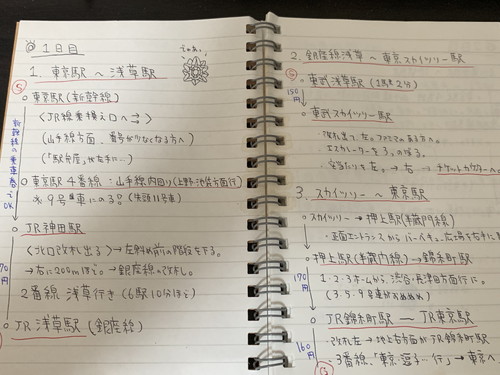 @ 1日目
1. 東京駅 〜 浅草駅
S
東京駅(新幹線)
〈JR線乗換え口へ⇉〉
(山手線方面、番号が少なくなる方へ)
(「駅弁屋」が左手に…)
新幹線の乗車券でOK
東京駅 4番線:山手線内回り(上野・池袋方面行)
※9号車にのる?(先頭11号車)
JR神田駅
〈北口改札出る〉→左斜め前の階段を下る。
→右に200mほど→銀座線の改札。
170円
2番線 浅草行き(6駅10分ほど)
JR 浅草駅(銀座線)
2. 銀座線浅草 〜 東京スカイツリー駅
S
東武浅草駅(1駅2分)
150円
東武スカイツリー駅
改札出て、左。ファミマのある方へ。
エスカレーターを3つのぼる。
突き当たりを左。→右→チケットカウンターへ
3. スカイツリー 〜 東京駅
スカイツリー→押上駅(半蔵門線)
・正面エントランスから
押上駅(半蔵門線)→錦糸町駅
170円
1・2・3ホームから、渋谷・長津田方面行に。
(3・5・9号車がおすすめ)
JR錦糸町駅 ― JR東京駅
160円
・改札左→地上右方面がJR錦糸町駅
・3番線、「東京・逗子…行」→東京へ
G